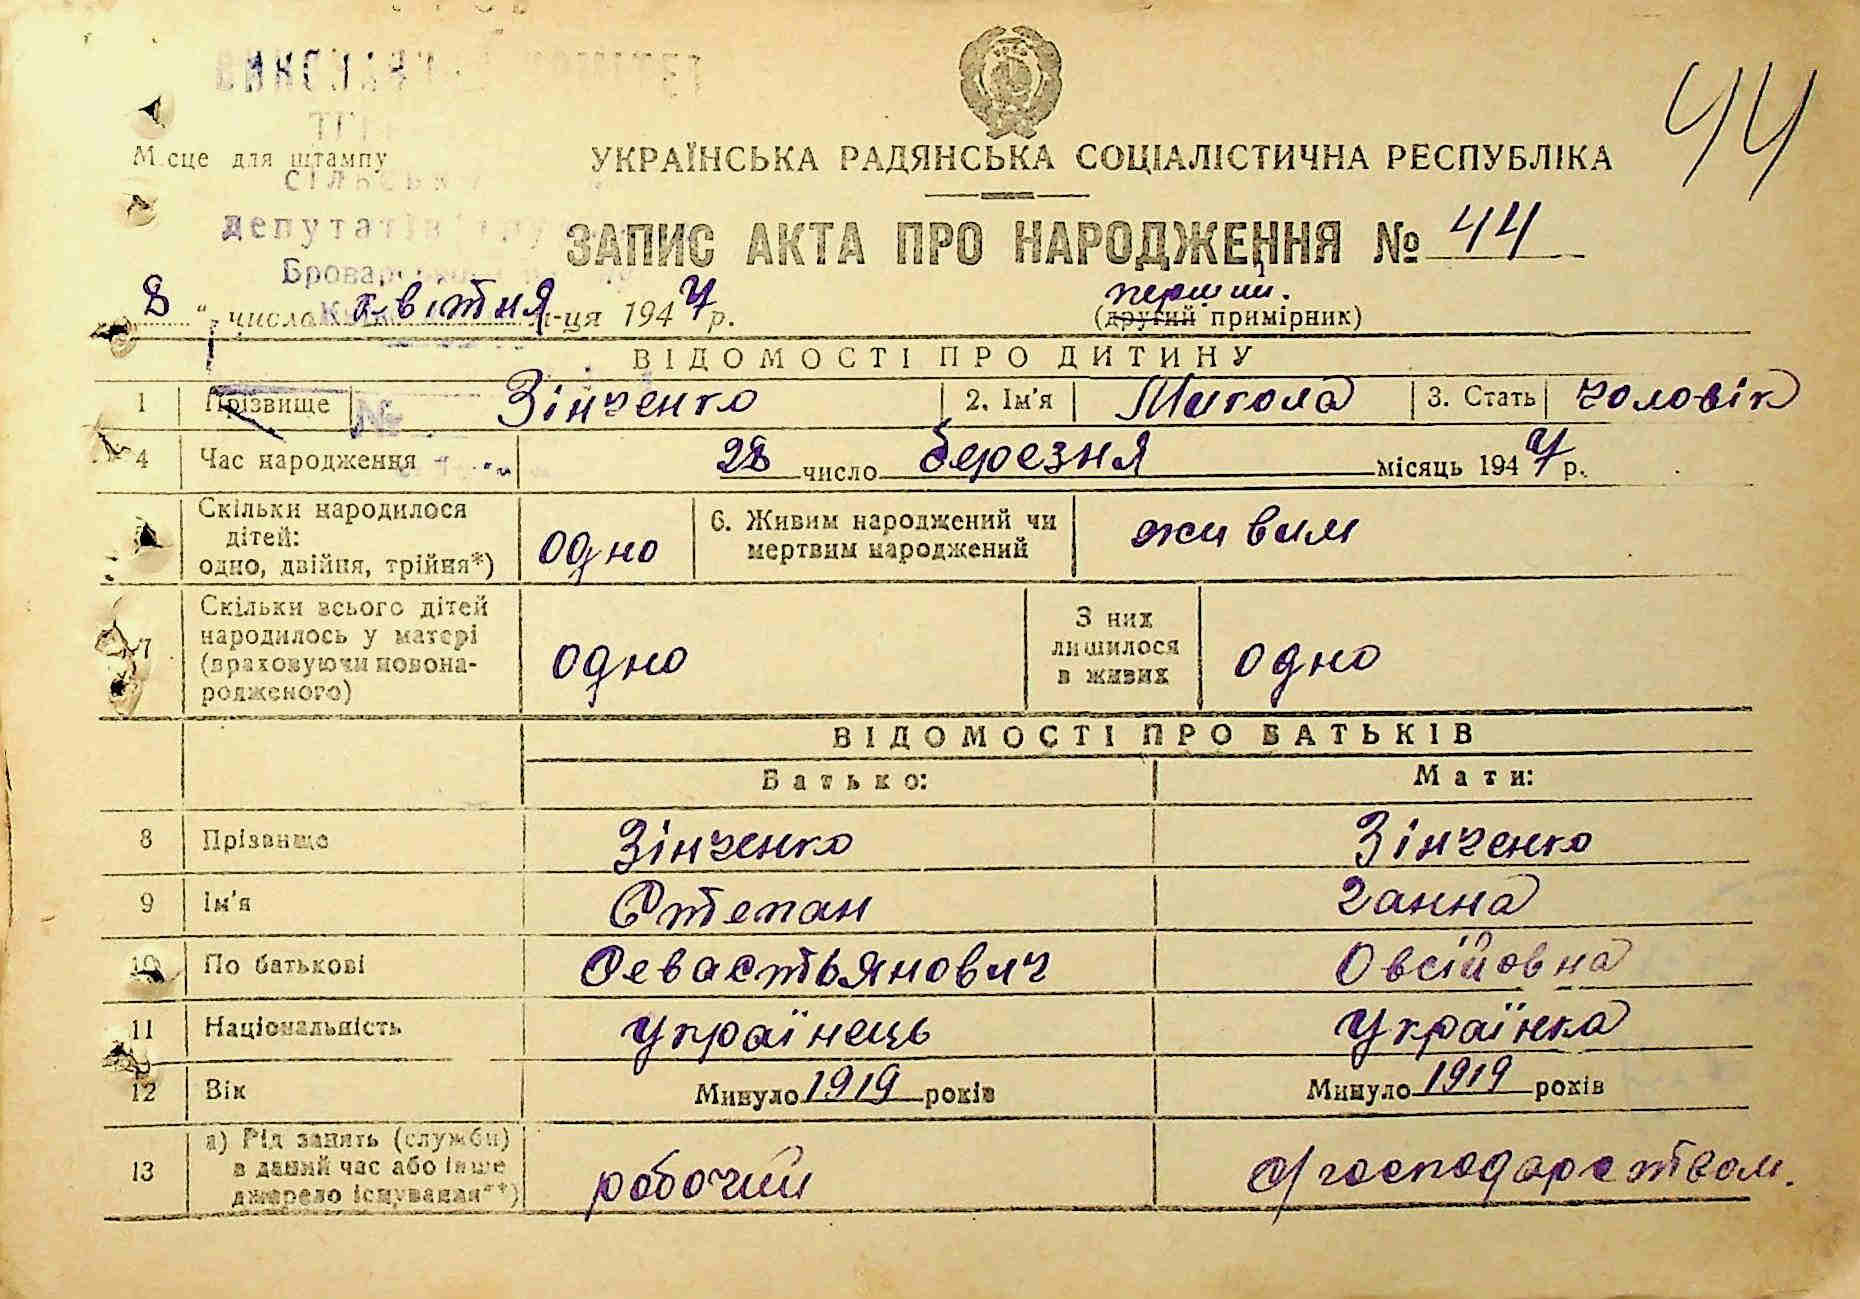 44
Місце для штампу
УКРАЇНСЬКА РАДЯНСЬКА СОЦІАЛІСТИЧНА РЕСПУБЛІКА
депутатів
ЗАПИС АКТА ПРО НАРОДЖЕННЯ № 44
8 " числа квітня м-ця 1947 р.
перший.
(другий примірник)
ВІДОМОСТІ ПРО ДИТИНУ
1 Прізвище Зінченко 2. Ім'я Микола 3. Стать чоловік
4 Час народження 28 число березня місяць 1947 р.
Скільки народилося
дітей:
одно, двійня, трійня*) одно 6. Живим народжений чи
мертвим народжений живим
7 Скільки всього дітей
народилось у матері
(враховуючи новона-
родженого) одно З них
лишилося
в живих одно
ВІДОМОСТІ ПРО БАТЬКІВ
Батько: Мати:
8 Прізвище Зінченко Зінченко
9 Ім'я Степан Ганна
10 По батькові Севастьянович Овсійовна
11 Національність Українець Українка
12 Вік Минуло 1919 років Минуло 1919 років
13 а) Рід занять (служби)
в даний час або інше
джерело існування**) робочий д/господарством.